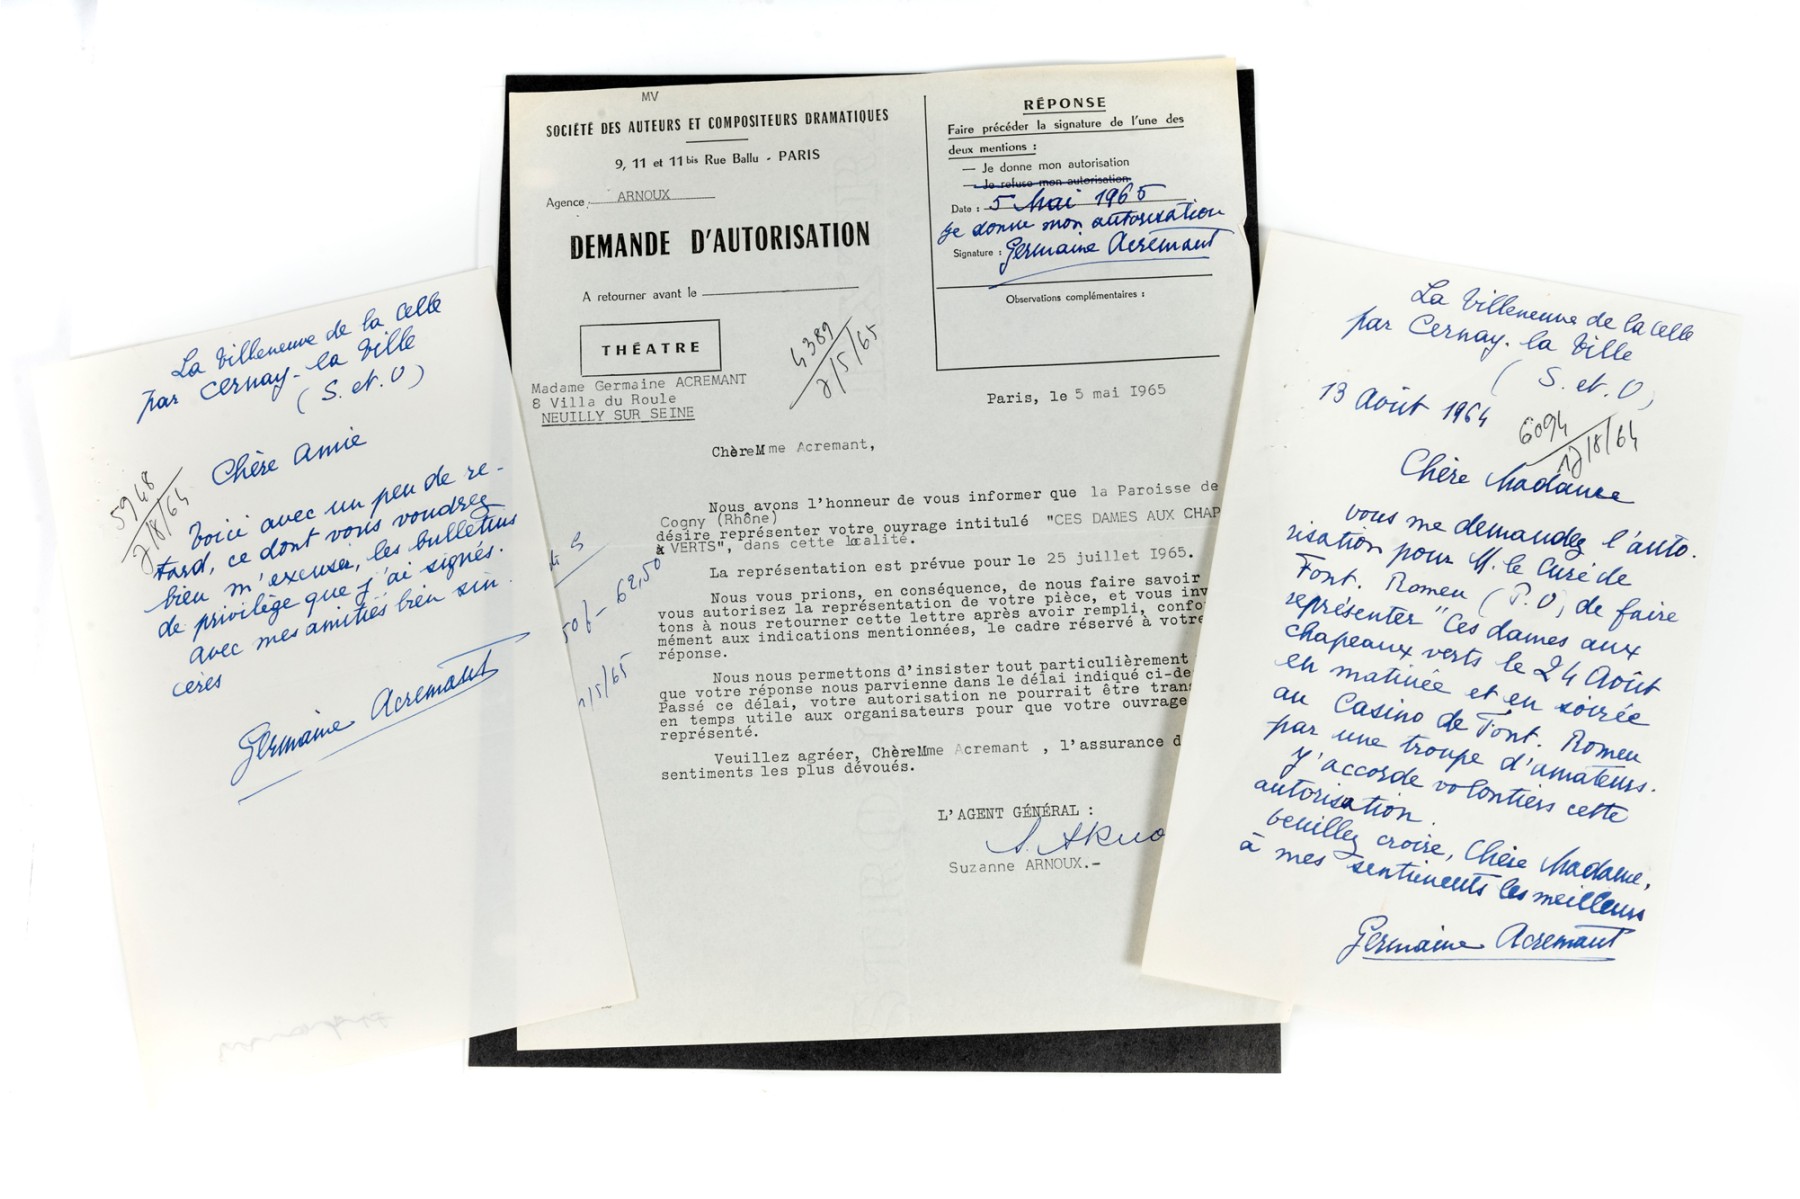 La Villeneuve de la Celle
par Cernay-la Ville
(S. et. O)
5948
7/8/64
Chère Amie
Voici avec un peu de re-
tard, ce dont vous voudrez
bien m'excuser, les bulletins
de privilège que j'ai signés.
avec mes amitiés bien sin-
cères
Germaine Acremant
MV
SOCIÉTÉ DES AUTEURS ET COMPOSITEURS DRAMATIQUES
9, 11 et 11 bis Rue Ballu - PARIS
Agence : ARNOUX
DEMANDE D'AUTORISATION
A retourner avant le
THÉATRE
4389
7/5/65
Madame Germaine ACREMANT
8 Villa du Roule
NEUILLY SUR SEINE
RÉPONSE
Faire précéder la signature de l'une des
deux mentions :
— Je donne mon autorisation
— Je refuse mon autorisation
Date : 5 Mai 1965
je donne mon autorisation
Signature : Germaine Acremant
Observations complémentaires :
Paris, le 5 mai I965
ChèreMme Acremant,
Nous avons l'honneur de vous informer que la Paroisse de
Cogny (Rhône)
désire représenter votre ouvrage intitulé "CES DAMES AUX CHAP
& VERTS", dans cette localité.
La représentation est prévue pour le 25 juillet I965.
Nous vous prions, en conséquence, de nous faire savoir
vous autorisez la représentation de votre pièce, et vous inv
tons à nous retourner cette lettre après avoir rempli, confo
mément aux indications mentionnées, le cadre réservé à votre
réponse.
Nous nous permettons d'insister tout particulièrement
que votre réponse nous parvienne dans le délai indiqué ci-de
Passé ce délai, votre autorisation ne pourrait être tran
en temps utile aux organisateurs pour que votre ouvrage
représenté.
Veuillez agréer, ChèreMme Acremant , l'assurance d
sentiments les plus dévoués.
L'AGENT GÉNÉRAL :
Suzanne ARNOUX.-
50f - 62,50
/5/65
La Villeneuve de la Celle
par Cernay-la Ville
(S. et. O)
13 Août 1964
6094
17/8/64
Chère Madame
Vous me demandez l'auto-
risation pour M. le Curé de
Font-Romeu (P.O) de faire
représenter "Ces dames aux
chapeaux verts le 24 Août
en matinée et en soirée
au Casino de Font-Romeu
par une troupe d'amateurs.
J'accorde volontiers cette
autorisation.
Veuillez croire, Chère Madame,
à mes sentiments les meilleurs
Germaine Acremant